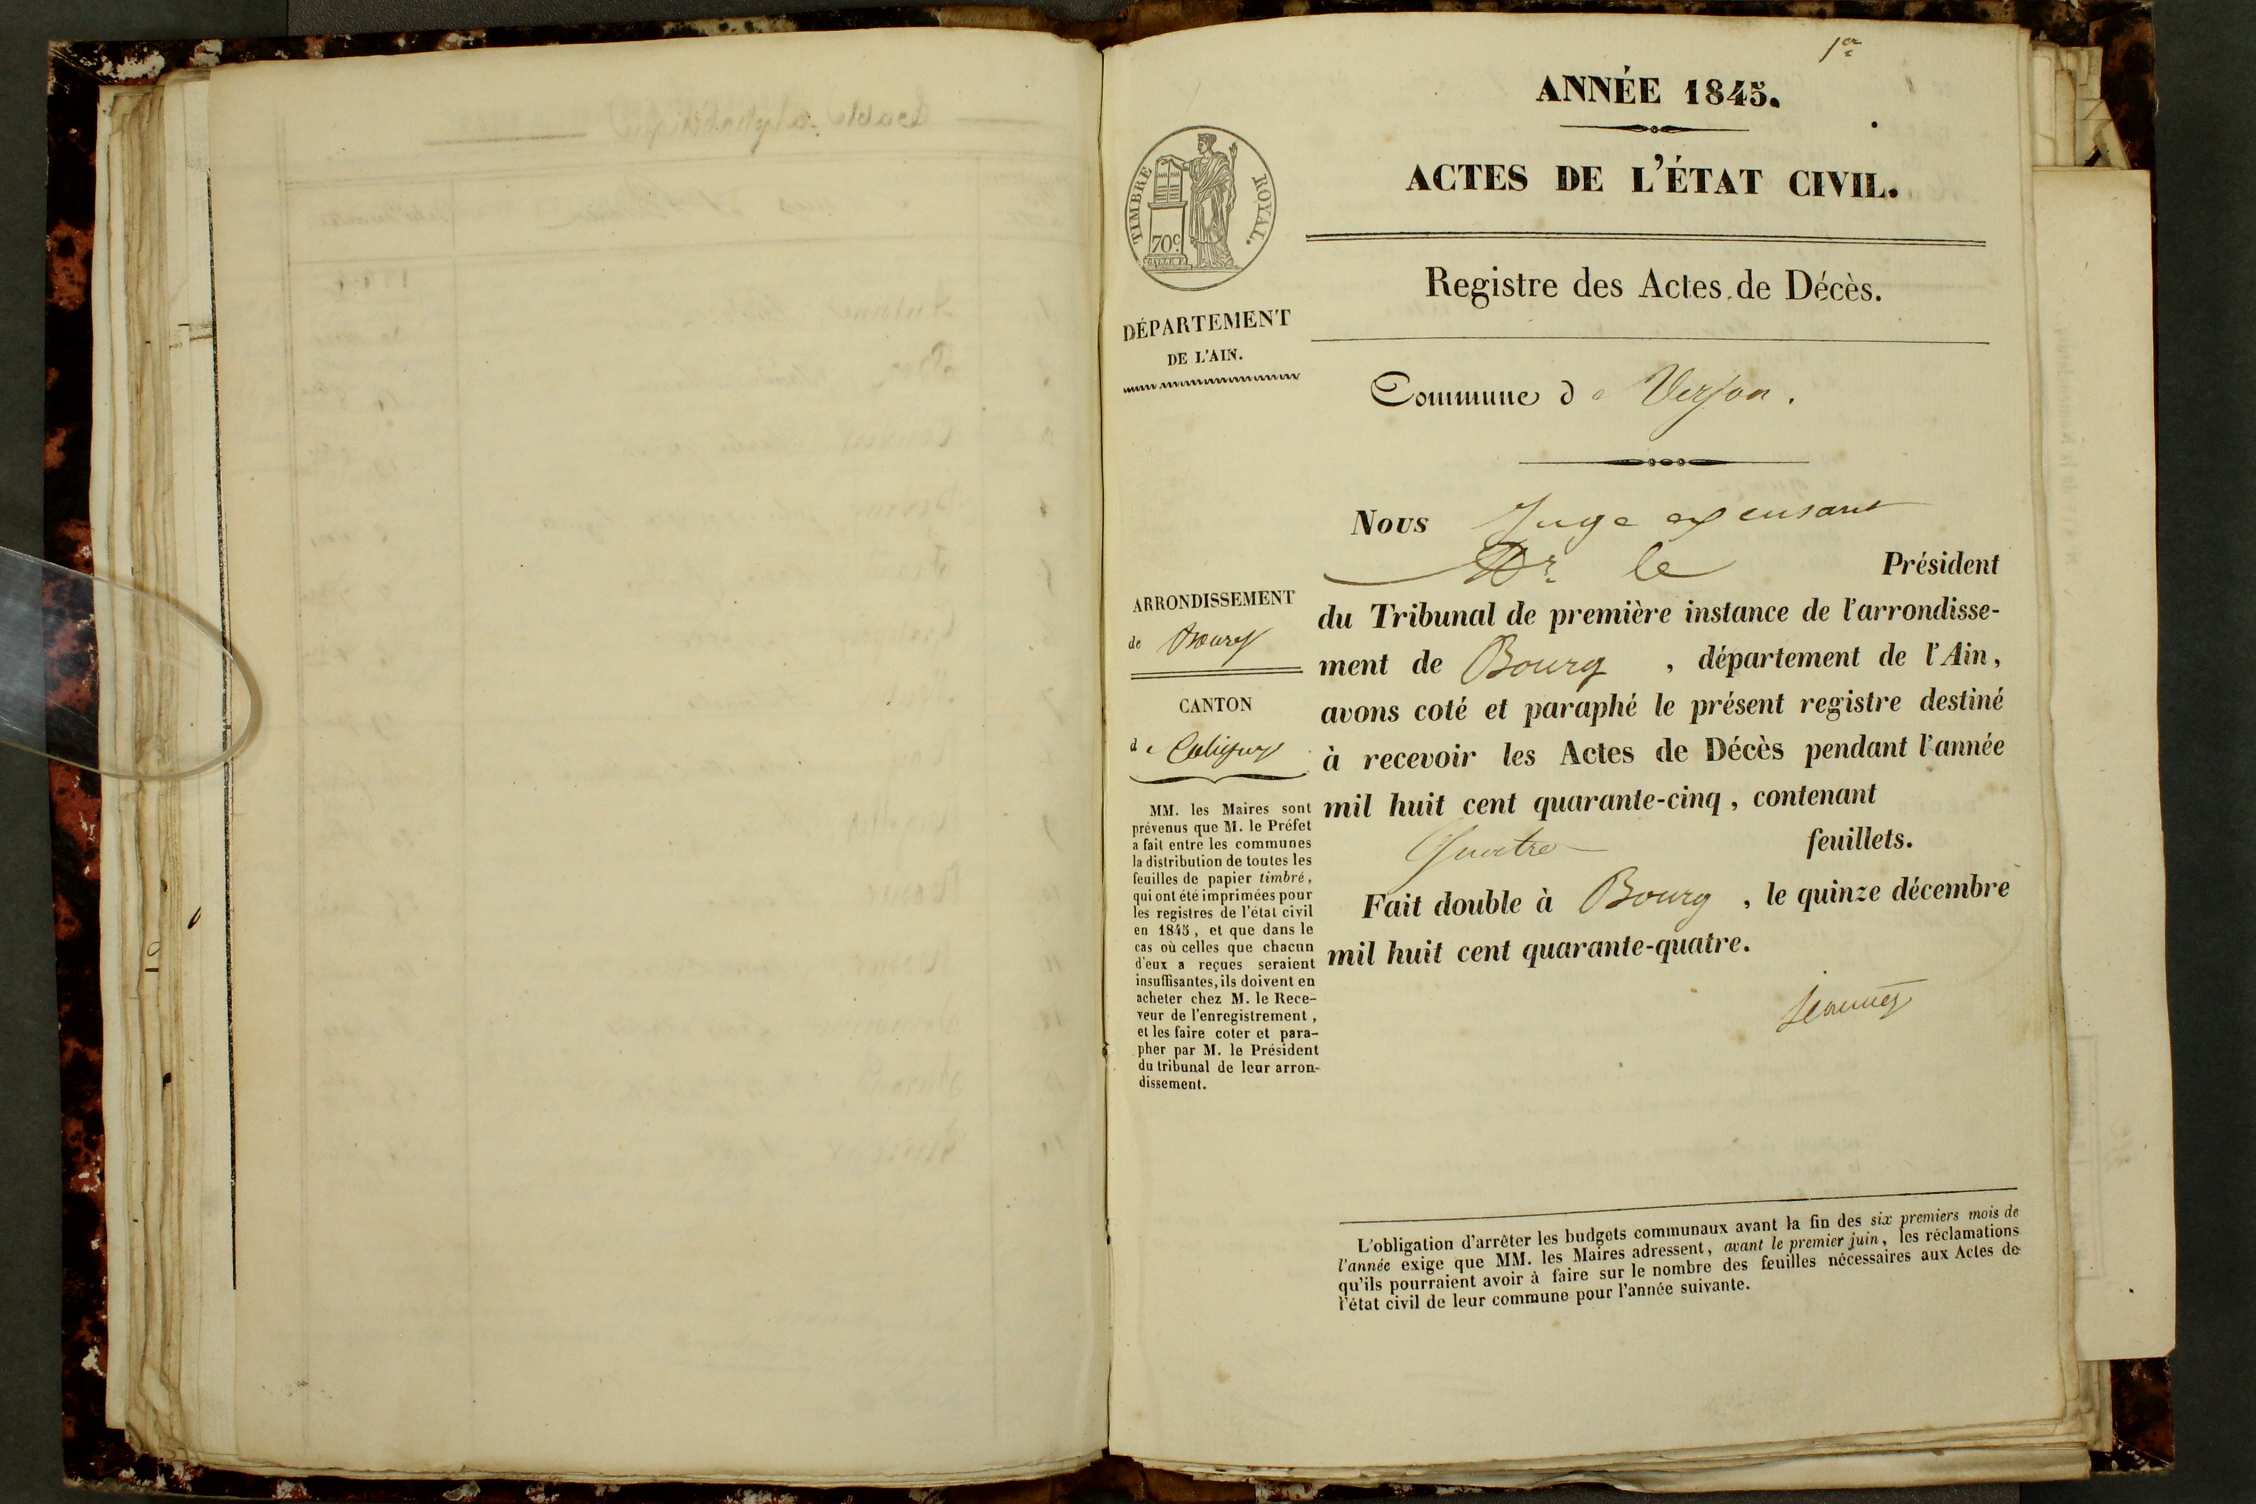 1er
ANNÉE 1845.
ACTES DE L'ÉTAT CIVIL.
TIMBRE ROYAL.
70c.
Registre des Actes de Décès.
DÉPARTEMENT
DE L'AIN.
Commune de Verjon.
Nous Juge
Mr le Président
du Tribunal de première instance de l'arrondisse-
ment de Bourg, département de l'Ain,
avons coté et paraphé le présent registre destiné
à recevoir les Actes de Décès pendant l'année
mil huit cent quarante-cinq, contenant
Quatre feuillets.
Fait double à Bourg, le quinze décembre
mil huit cent quarante-quatre.
ARRONDISSEMENT
de Bourg
CANTON
de Coligny
MM. les Maires sont
prévenus que M. le Préfet
a fait entre les communes
la distribution de toutes les
feuilles de papier timbré,
qui ont été imprimées pour
les registres de l'état civil
en 1845, et que dans le
cas où celles que chacun
d'eux a reçues seraient
insuffisantes, ils doivent en
acheter chez M. le Rece-
veur de l'enregistrement,
et les faire coter et para-
pher par M. le Président
du tribunal de leur arron-
dissement.
L'obligation d'arrêter les budgets communaux avant la fin des six premiers mois de
l'année exige que MM. les Maires adressent, avant le premier juin, les réclamations
qu'ils pourraient avoir à faire sur le nombre des feuilles nécessaires aux Actes de
l'état civil de leur commune pour l'année suivante.